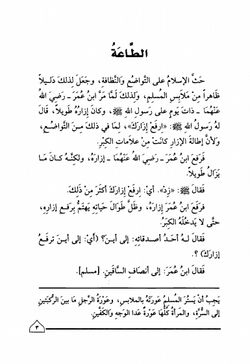 الطَّاعَةُ
حَثَّ الإسلامُ على التَّواضُعِ والنَّظافَةِ، وجعَلَ لِذلكَ دَليلاً
ظاهراً مِنْ مَلابسِ المُسلِمِ، ولذلكَ لمَّا مَرَّ ابنُ عُمَرَ - رَضِيَ اللهُ
عَنْهُمَا - ذاتَ يَوْمٍ على رسولِ اللهِ ﷺ، وكَانَ إزَارُهُ طَويلاً، قَالَ
لهُ رسولُ اللهِ ﷺ: «ارفَعْ إزارَكَ»، لِمَا في ذلكَ مِنَ التَّواضُعِ،
ولأنَّ إطالةَ الإزارِ كانتْ مِنْ علاماتِ الكِبْرِ.
فَرفَعَ ابنُ عُمَرَ - رَضِيَ اللهُ عَنْهُمَا - إزارَهُ، ولكِنَّهُ كَانَ مَا
يَزَالُ طَويلاً.
فقَالَ ﷺ: «زِدْ». أيْ: ارفَعْ إزارَكَ أكثَرَ مِنْ ذلكَ.
فرَفعَ ابنُ عُمَرَ، وظَلَّ طَوَالَ حَياتِهِ يَهتَمُّ بِرَفْعِ إزارِهِ،
حتَّى لا يَدخُلَهُ الكِبْرُ.
فقَالَ لهُ أحَدُ أصدقائِهِ: إلى أينَ؟ (أيْ: إلى أينَ ترفَعُ
إزارَكَ) ؟
فقَالَ ابنُ عُمَرَ: إلى أنصافِ السَّاقَينِ. [مسلم].
يَجِبُ أنْ يَستُرَ المُسلِمُ عَورَتَهُ بالملابسِ، وعَورَةُ الرَّجُلِ مَا بينَ الرُّكبتَينِ
إلى السُّرَّةِ، والمرأةُ كُلُّها عَورَةٌ عدَا الوَجهِ والكَفَّينِ.
٣